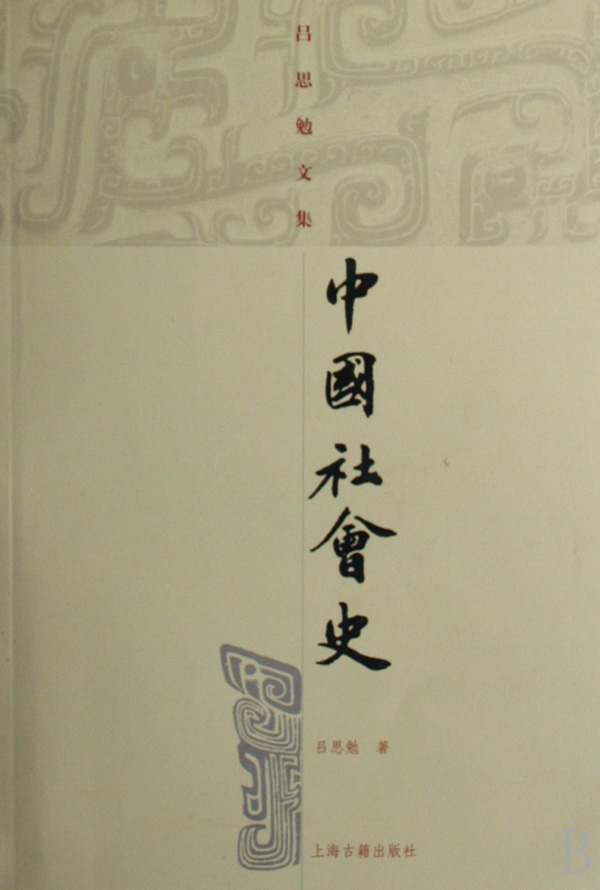 吕思勉文集
中國社會史
吕思勉 著
上海古籍出版社
B